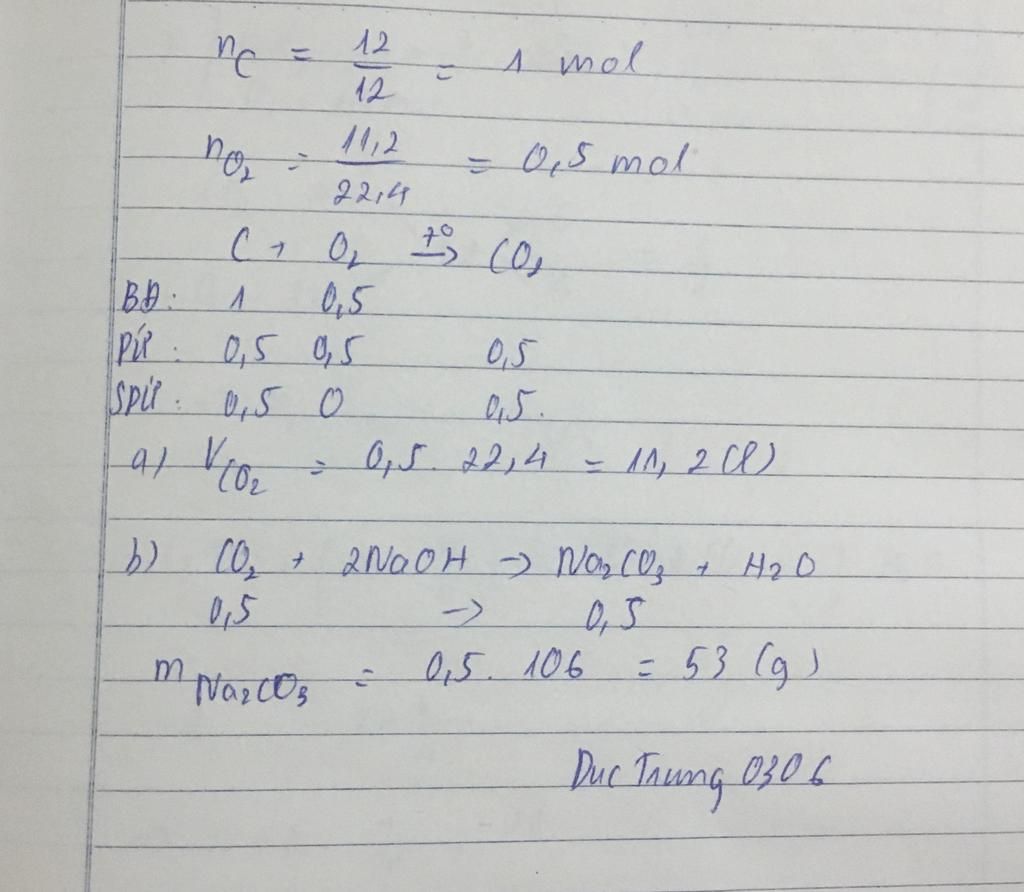 nC = 12/12 = 1 mol
nO2 = 11,2/22,4 = 0,5 mol
C + O2 t° → CO2
BĐ: 1 0,5
PƯ: 0,5 0,5 0,5
SPƯ: 0,5 0 0,5.
a) VCO2 = 0,5. 22,4 = 11,2 (l)
b) CO2 + 2NaOH → Na2CO3 + H2O
0,5 → 0,5
mNa2CO3 = 0,5. 106 = 53 (g)
Duc Trung 0306